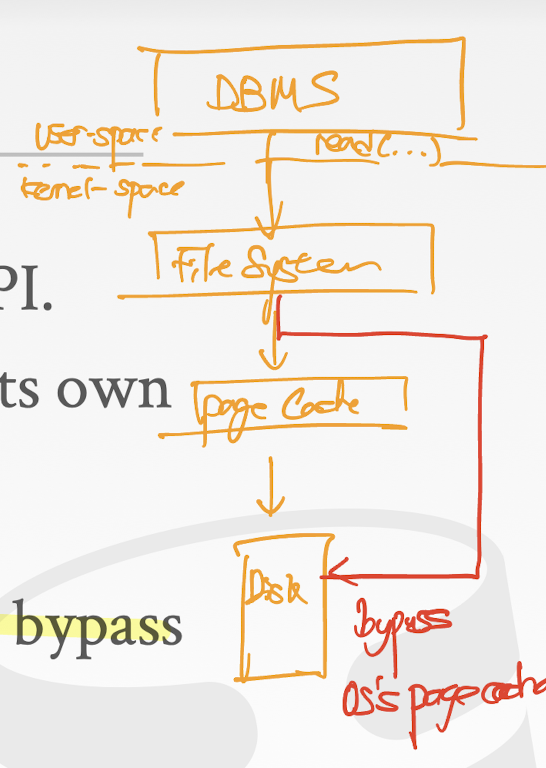 DBMS
User-space
read(...)
kernel-space
File System
PI.
ts own
page Cache
Disk
bypass
bypass
OS's page cache